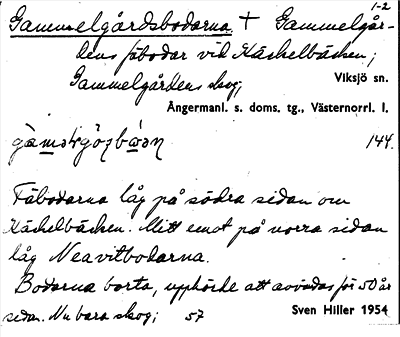 1-2
Gammelgårdsbodarna † Gammelgår-
dens fäbodar vid Käckelbäcken;
Gammelgårdens skog;
Viksjö sn.
Ångermanl. s. doms. tg., Västernorrl. l.
144.
Fäbodarna låg på södra sidan om
Käckelbäcken. Mitt emot på norra sidan
låg Neavitbodarna.
Bodarna borta, upphörde att användas för 50 år
sedan. Nu bara skog; 57
Sven Hiller 1954